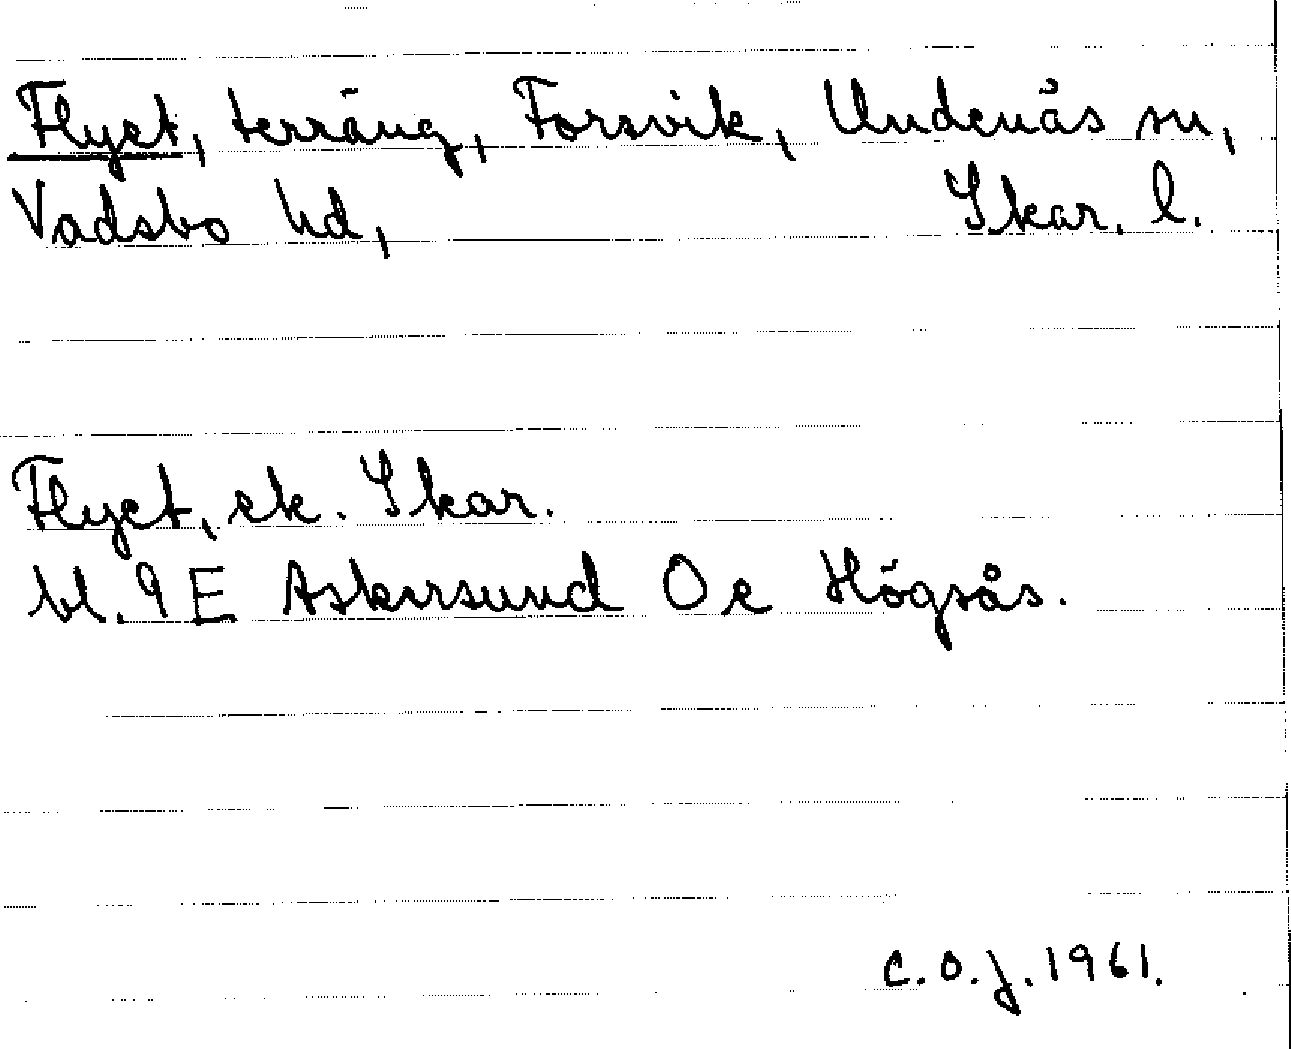 Flyet, terräng, Forsvik, Undenäs sn,
Vadsbo hd, Skar. l.
Flyet, ek. Skar.
bl. 9E Askersund Oe Högsås.
C.O.J. 1961.